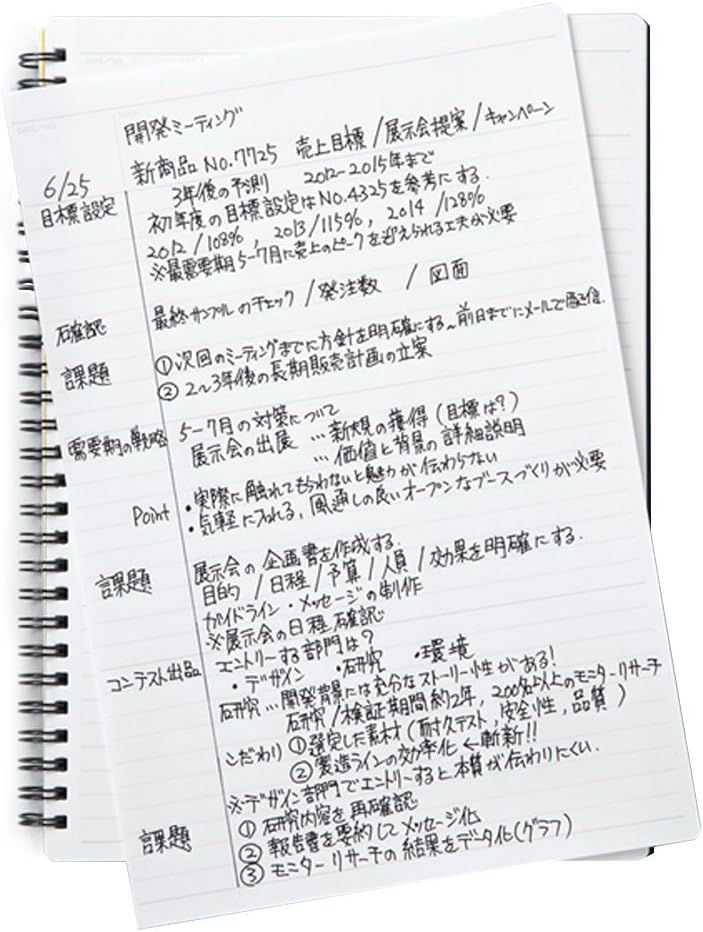 開発ミーティング
6/25 新商品 No.7725 売上目標/展示会提案/キャンペーン
目標設定 3年後の予測 2012-2015年まで
初年度の目標設定はNo.4325を参考にする.
2012/108%, 2013/115%, 2014/128%
※最需要期5-7月に売上のピークを迎えられる工夫が必要
確認 最終サンプルのチェック / 発注数 / 図面
課題 ①次回のミーティングまでに方針を明確にする~前日までにメールで配信.
②2~3年後の長期販売計画の立案
需要期の戦略 5-7月の対策について
展示会の出展 …新規の獲得(目標は?)
…価値と背景の詳細説明
Point ・実際に触れてもらわないと魅力が伝わらない
・気軽に入れる、風通しの良いオープンなブースづくりが必要
課題 展示会の企画書を作成する.
目的/日程/予算/人員/効果を明確にする.
ガイドライン・メッセージの制作
※展示会の日程確認
コンテスト出品 エントリーする部門は?
・デザイン ・研究 ・環境
研究…開発背景には充分なストーリー性がある!
研究/検証期間約2年, 200名以上のモニターリサーチ
こだわり ①選定した素材(耐久テスト, 安全性, 品質)
②製造ラインの効率化←斬新!!
※デザイン部門でエントリーすると本質が伝わりにくい.
課題 ①研究内容を再確認
②報告書を要約してメッセージ化
③モニターリサーチの結果をデータ化(グラフ)